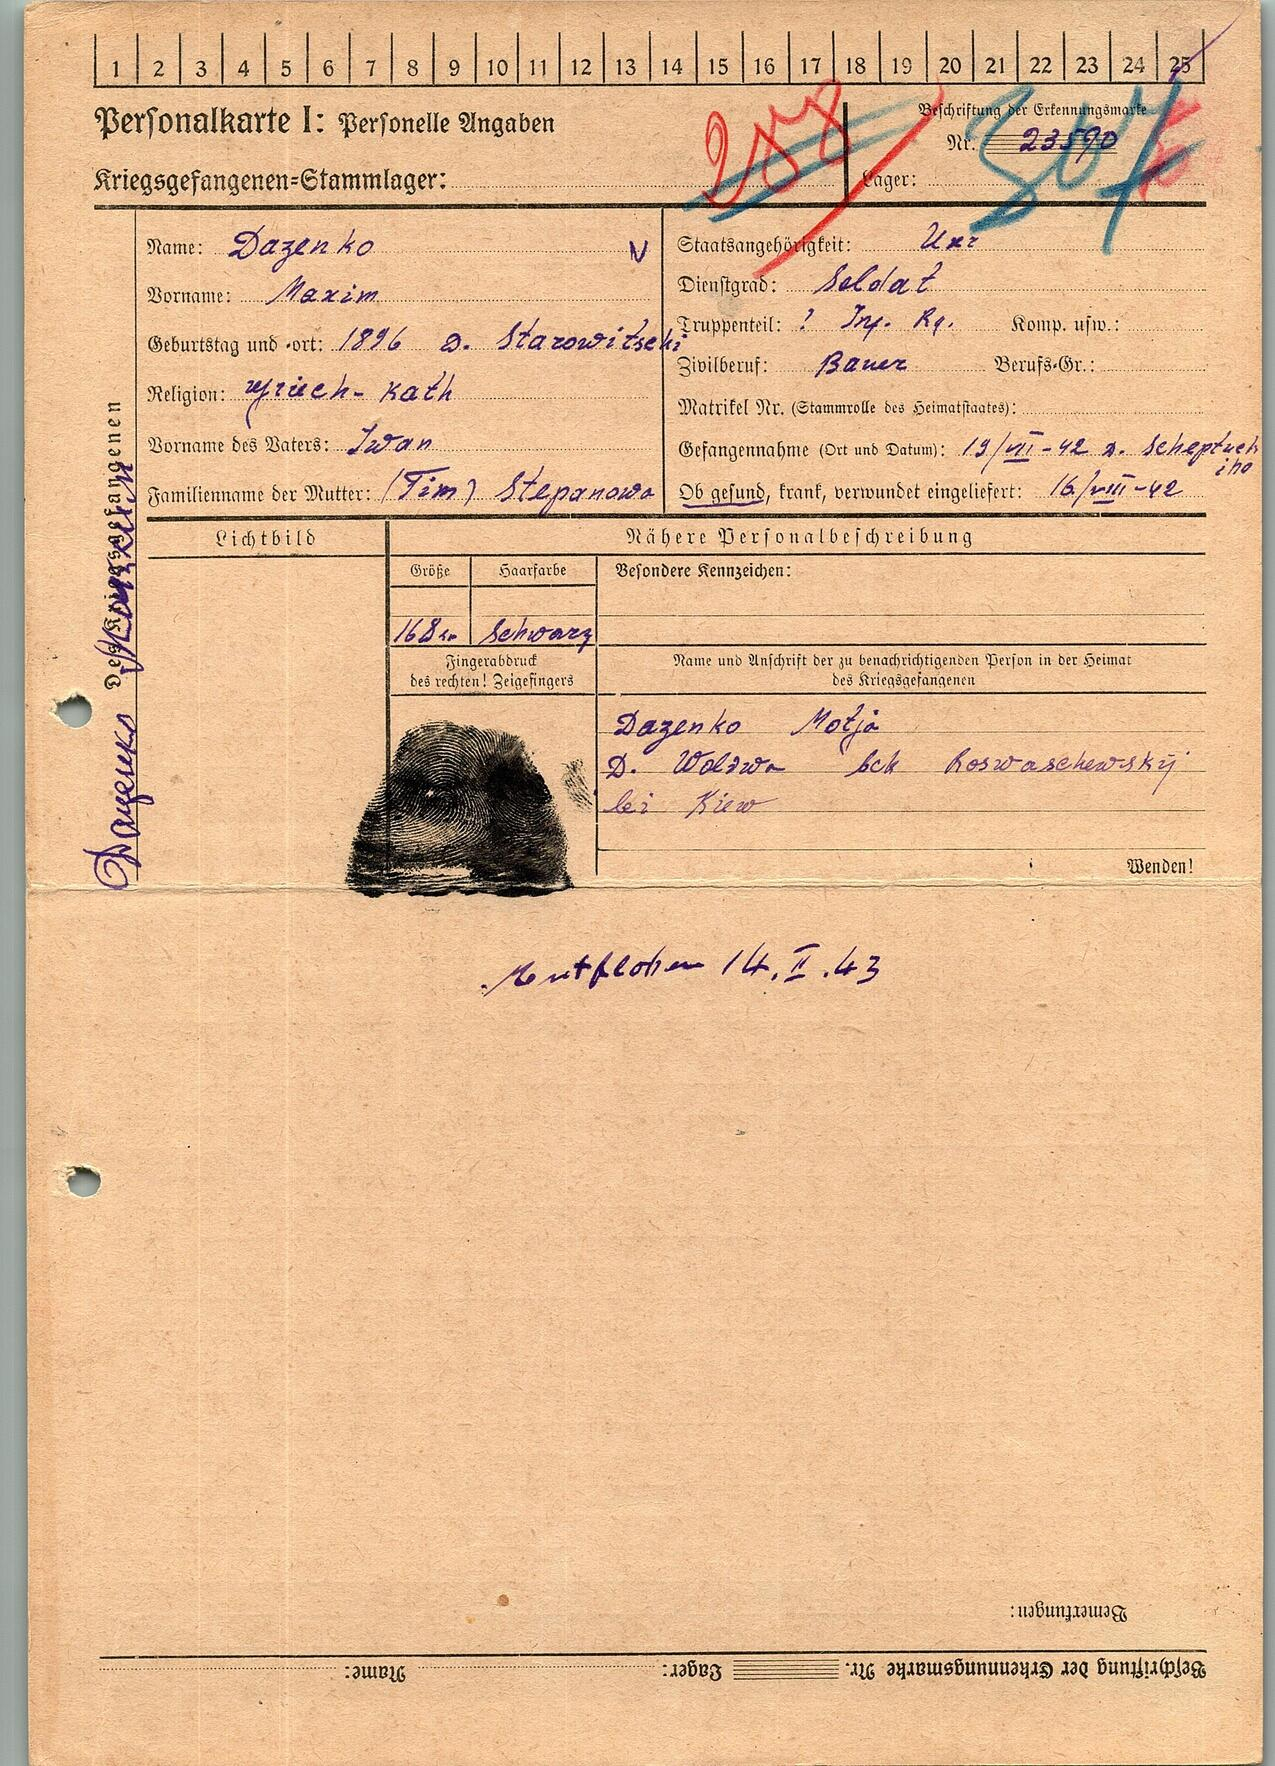 1 2 3 4 5 6 7 8 9 10 11 12 13 14 15 16 17 18 19 20 21 22 23 24 25
Personalkarte I: Personelle Angaben
Beschriftung der Erkennungsmarke
Nr. 23590
Kriegsgefangenen-Stammlager:
Lager:
Name: Dazenko
Vorname: Maxim
Geburtstag und -ort: 1896 D. Starowitschi
Religion: griech-kath
Vorname des Vaters: Iwan
Familienname der Mutter: (Tim) Stepanowa
Staatsangehörigkeit:
Dienstgrad: Soldat
Truppenteil: ? Inf. Rg. Komp. usw.:
Zivilberuf: Bauer Berufs-Gr.:
Matrikel Nr. (Stammrolle des Heimatstaates):
Gefangennahme (Ort und Datum): 19/VII-42
Ob gesund, krank, verwundet eingeliefert: 16/VIII-42
Des Kriegsgefangenen
Даценко
Lichtbild
Nähere Personalbeschreibung
Größe
Haarfarbe
Besondere Kennzeichen:
168
Schwarz
Fingerabdruck
des rechten! Zeigefingers
Name und Anschrift der zu benachrichtigenden Person in der Heimat
des Kriegsgefangenen
Dazenko Motja
D. Roswaschewskij
bei Kiew
Wenden!
Entflohen 14.II.43
Bemerkungen:
Beschriftung der Erkennungsmarke Nr. Lager: Name: